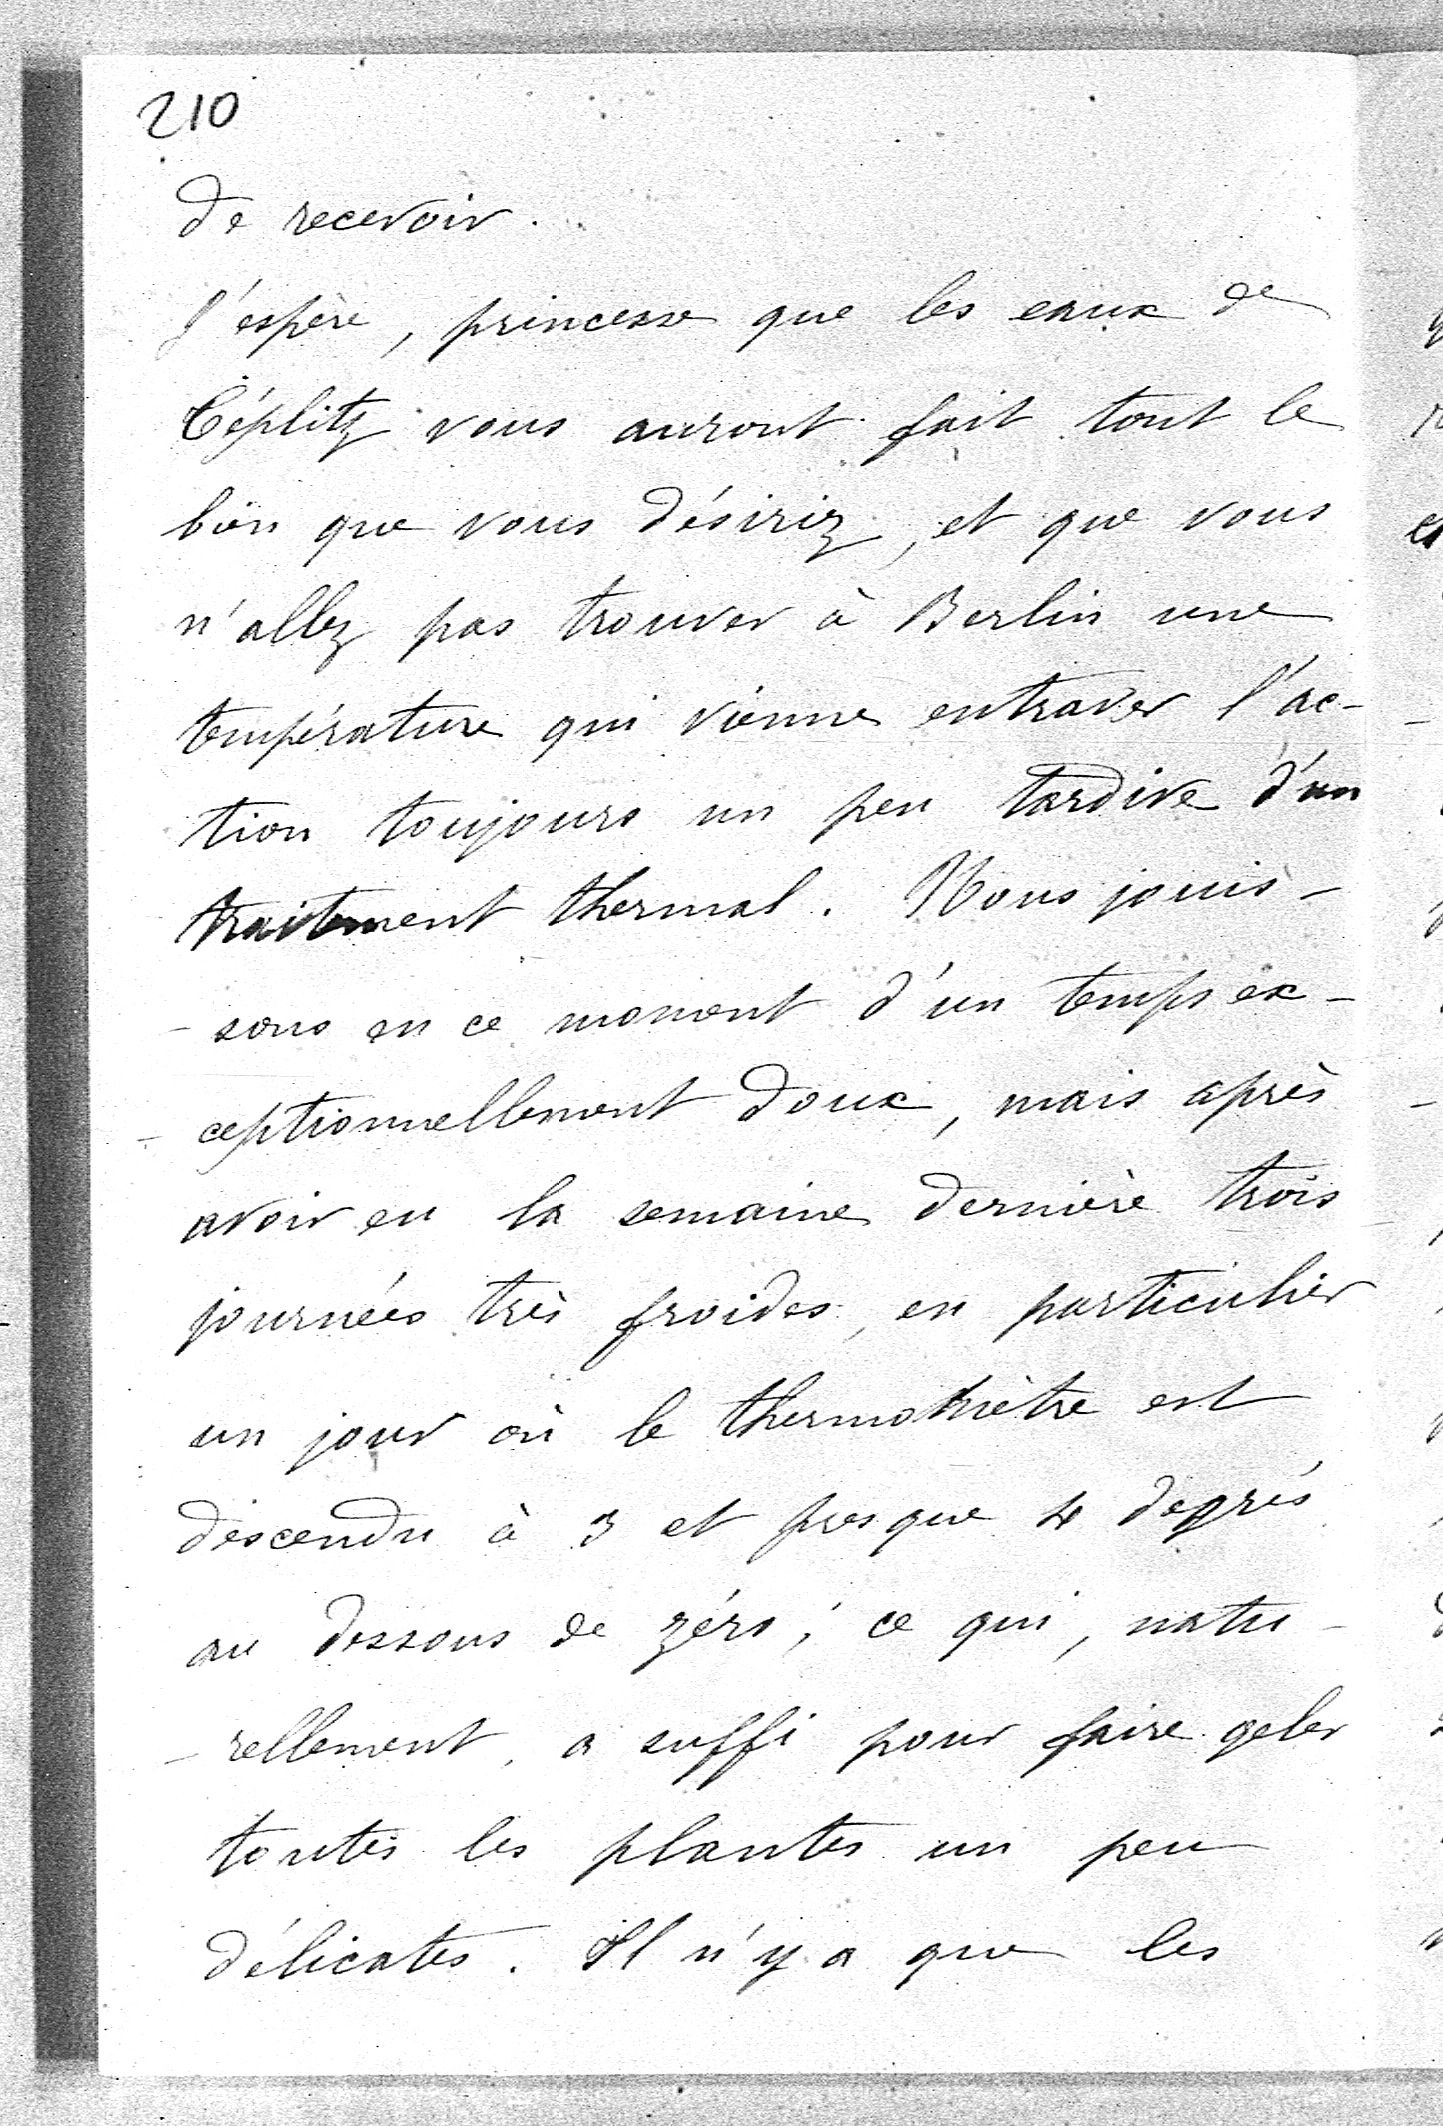 210
de recevoir.
J'espère, princesse que les eaux de
Céplitz vous auront fait tout le
bien que vous désiriez, et que vous
n'allez pas trouver à Berlin une
température qui vienne entraver l'ac-
tion toujours un peu tardive d'un
traitement thermal. Nous jouis-
-sons en ce moment d'un temps ex-
-ceptionnellement doux, mais après
avoir eu la semaine dernière trois
journées très froides, en particulier
un jour où le thermomètre est
descendu à 3 et presque 4 degrés
au dessous de zéro; ce qui, natu-
-rellement, a suffi pour faire geler
toutes les plantes un peu
délicates. Il n'y a que les